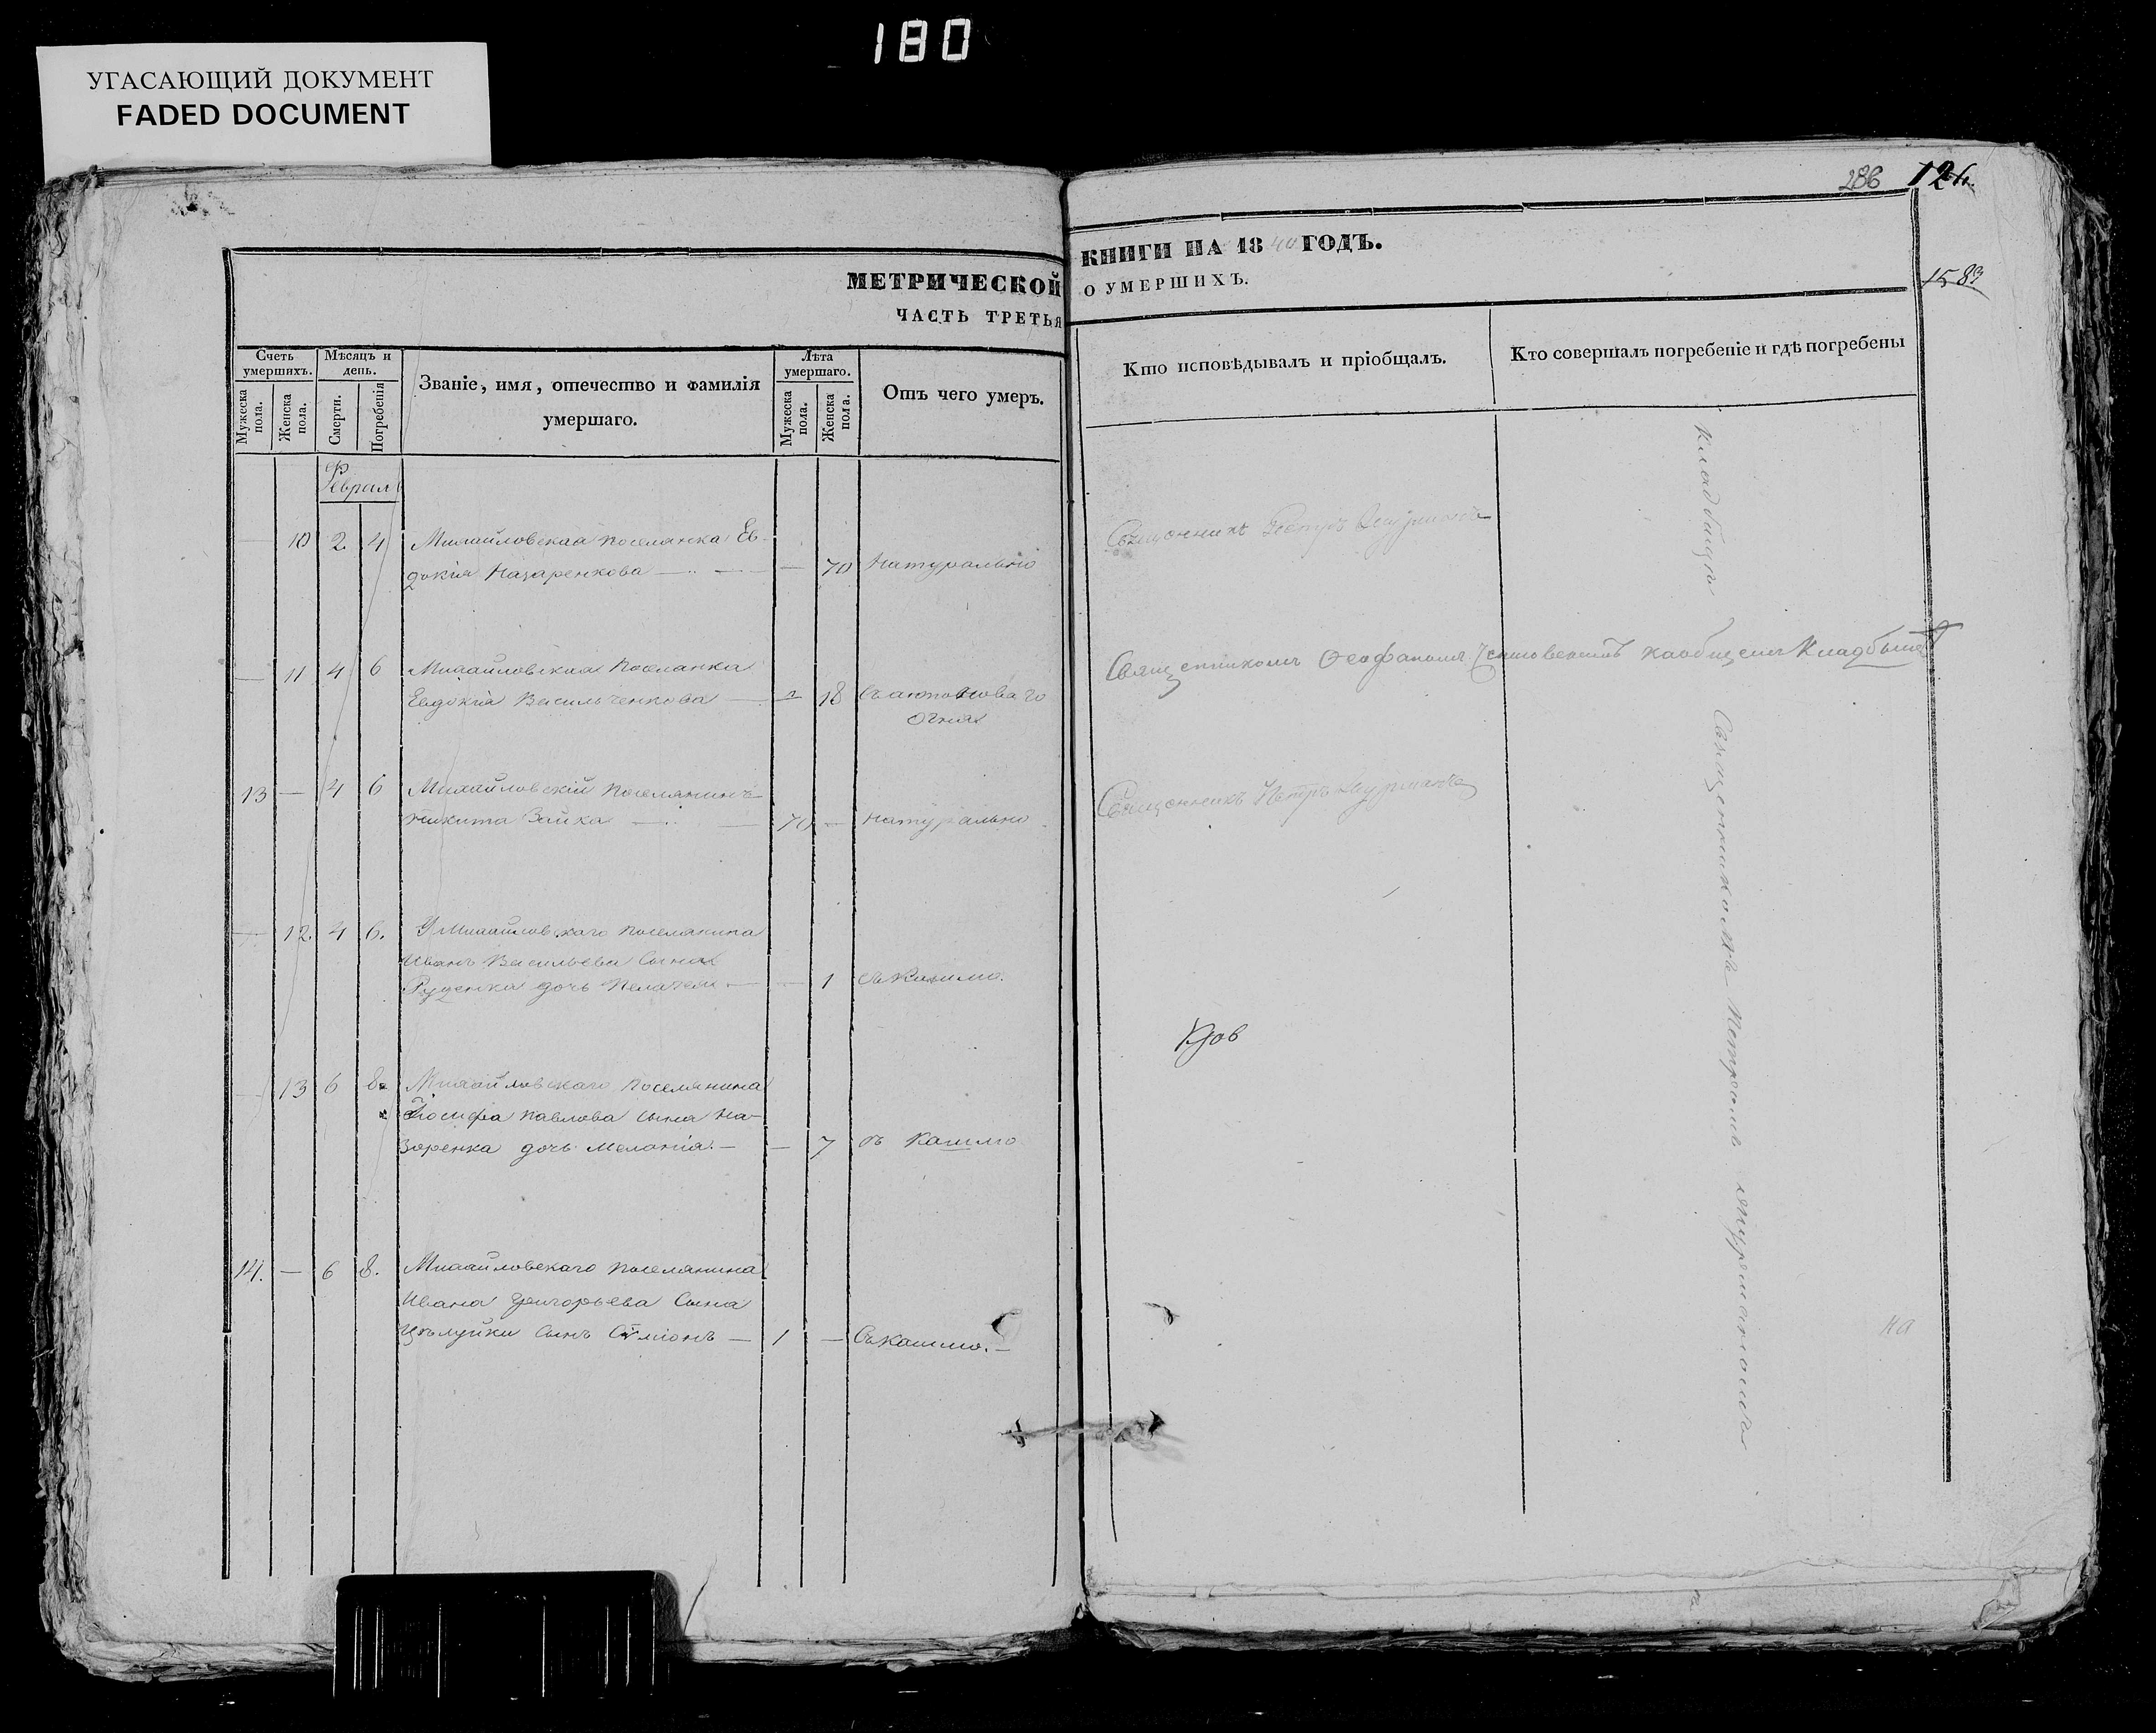 180
УГАСАЮЩИЙ ДОКУМЕНТ
FADED DOCUMENT
286 126.
1583
МЕТРИЧЕСКОЙ КНИГИ НА 1840 ГОДЪ.
ЧАСТЬ ТРЕТЬЯ О УМЕРШИХЪ.
Счетъ умершихъ.
Мужеска пола.
Женска пола.
Мѣсяцъ и день.
Смерти.
Погребенія
Званіе, имя, отечество и фамилія
умершаго.
Лѣта умершаго.
Мужеска пола.
Женска пола.
Отъ чего умеръ.
Кто исповѣдывалъ и пріобщалъ.
Кто совершалъ погребеніе и гдѣ погребены
Феврал
— 10 2 4 Михайловская поселянка Ев-
докія Назаренкова — — 70 Натурально
Священникъ Петръ
— 11 4 6 Михайловская поселянка
Евдокія Васильченкова — 18 съ антонова го
огня
Священникомъ Феофаномъ на общемъ Кладбыще
13 — 4 6 Михайловскій поселянинъ
Никита Зайка — 70 — натурально
Священникъ Петръ
— 12 4 6. У Михайловскаго поселянина
Иванъ Васильева Сына
Руденка дочь Пелагея — — 1 съ Кашлю.
— 13 6 8. Михайловскаго поселянина
Іосифа Павлова сына На-
заренка дочь Меланія. — — 7 съ Кашлю
14. — 6 8. Михайловскаго поселянина
Ивана Григорьева Сына
Цѣлуйки сынъ Сѵміонъ — 1 — Съ Кашлю. —
на
Священникомъ Петромъ
кладбищи